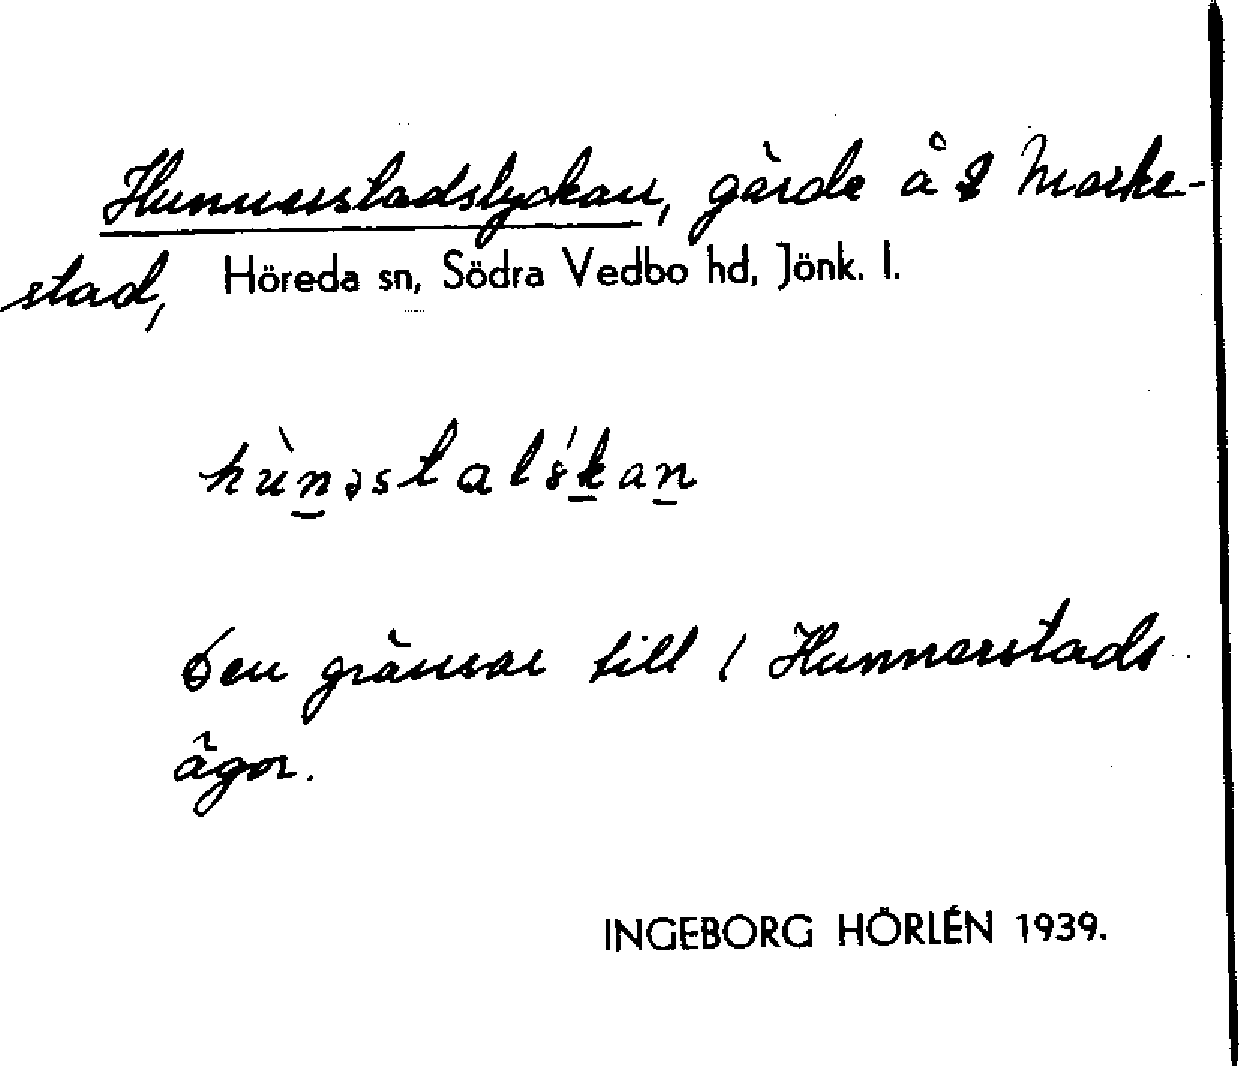 Hunnerstadslyckan, gärde å 2 Marke-
stad, Höreda sn, Södra Vedbo hd, Jönk. l.
Den gränsar till / Hunnerstads
ägor.
INGEBORG HÖRLÉN 1939.